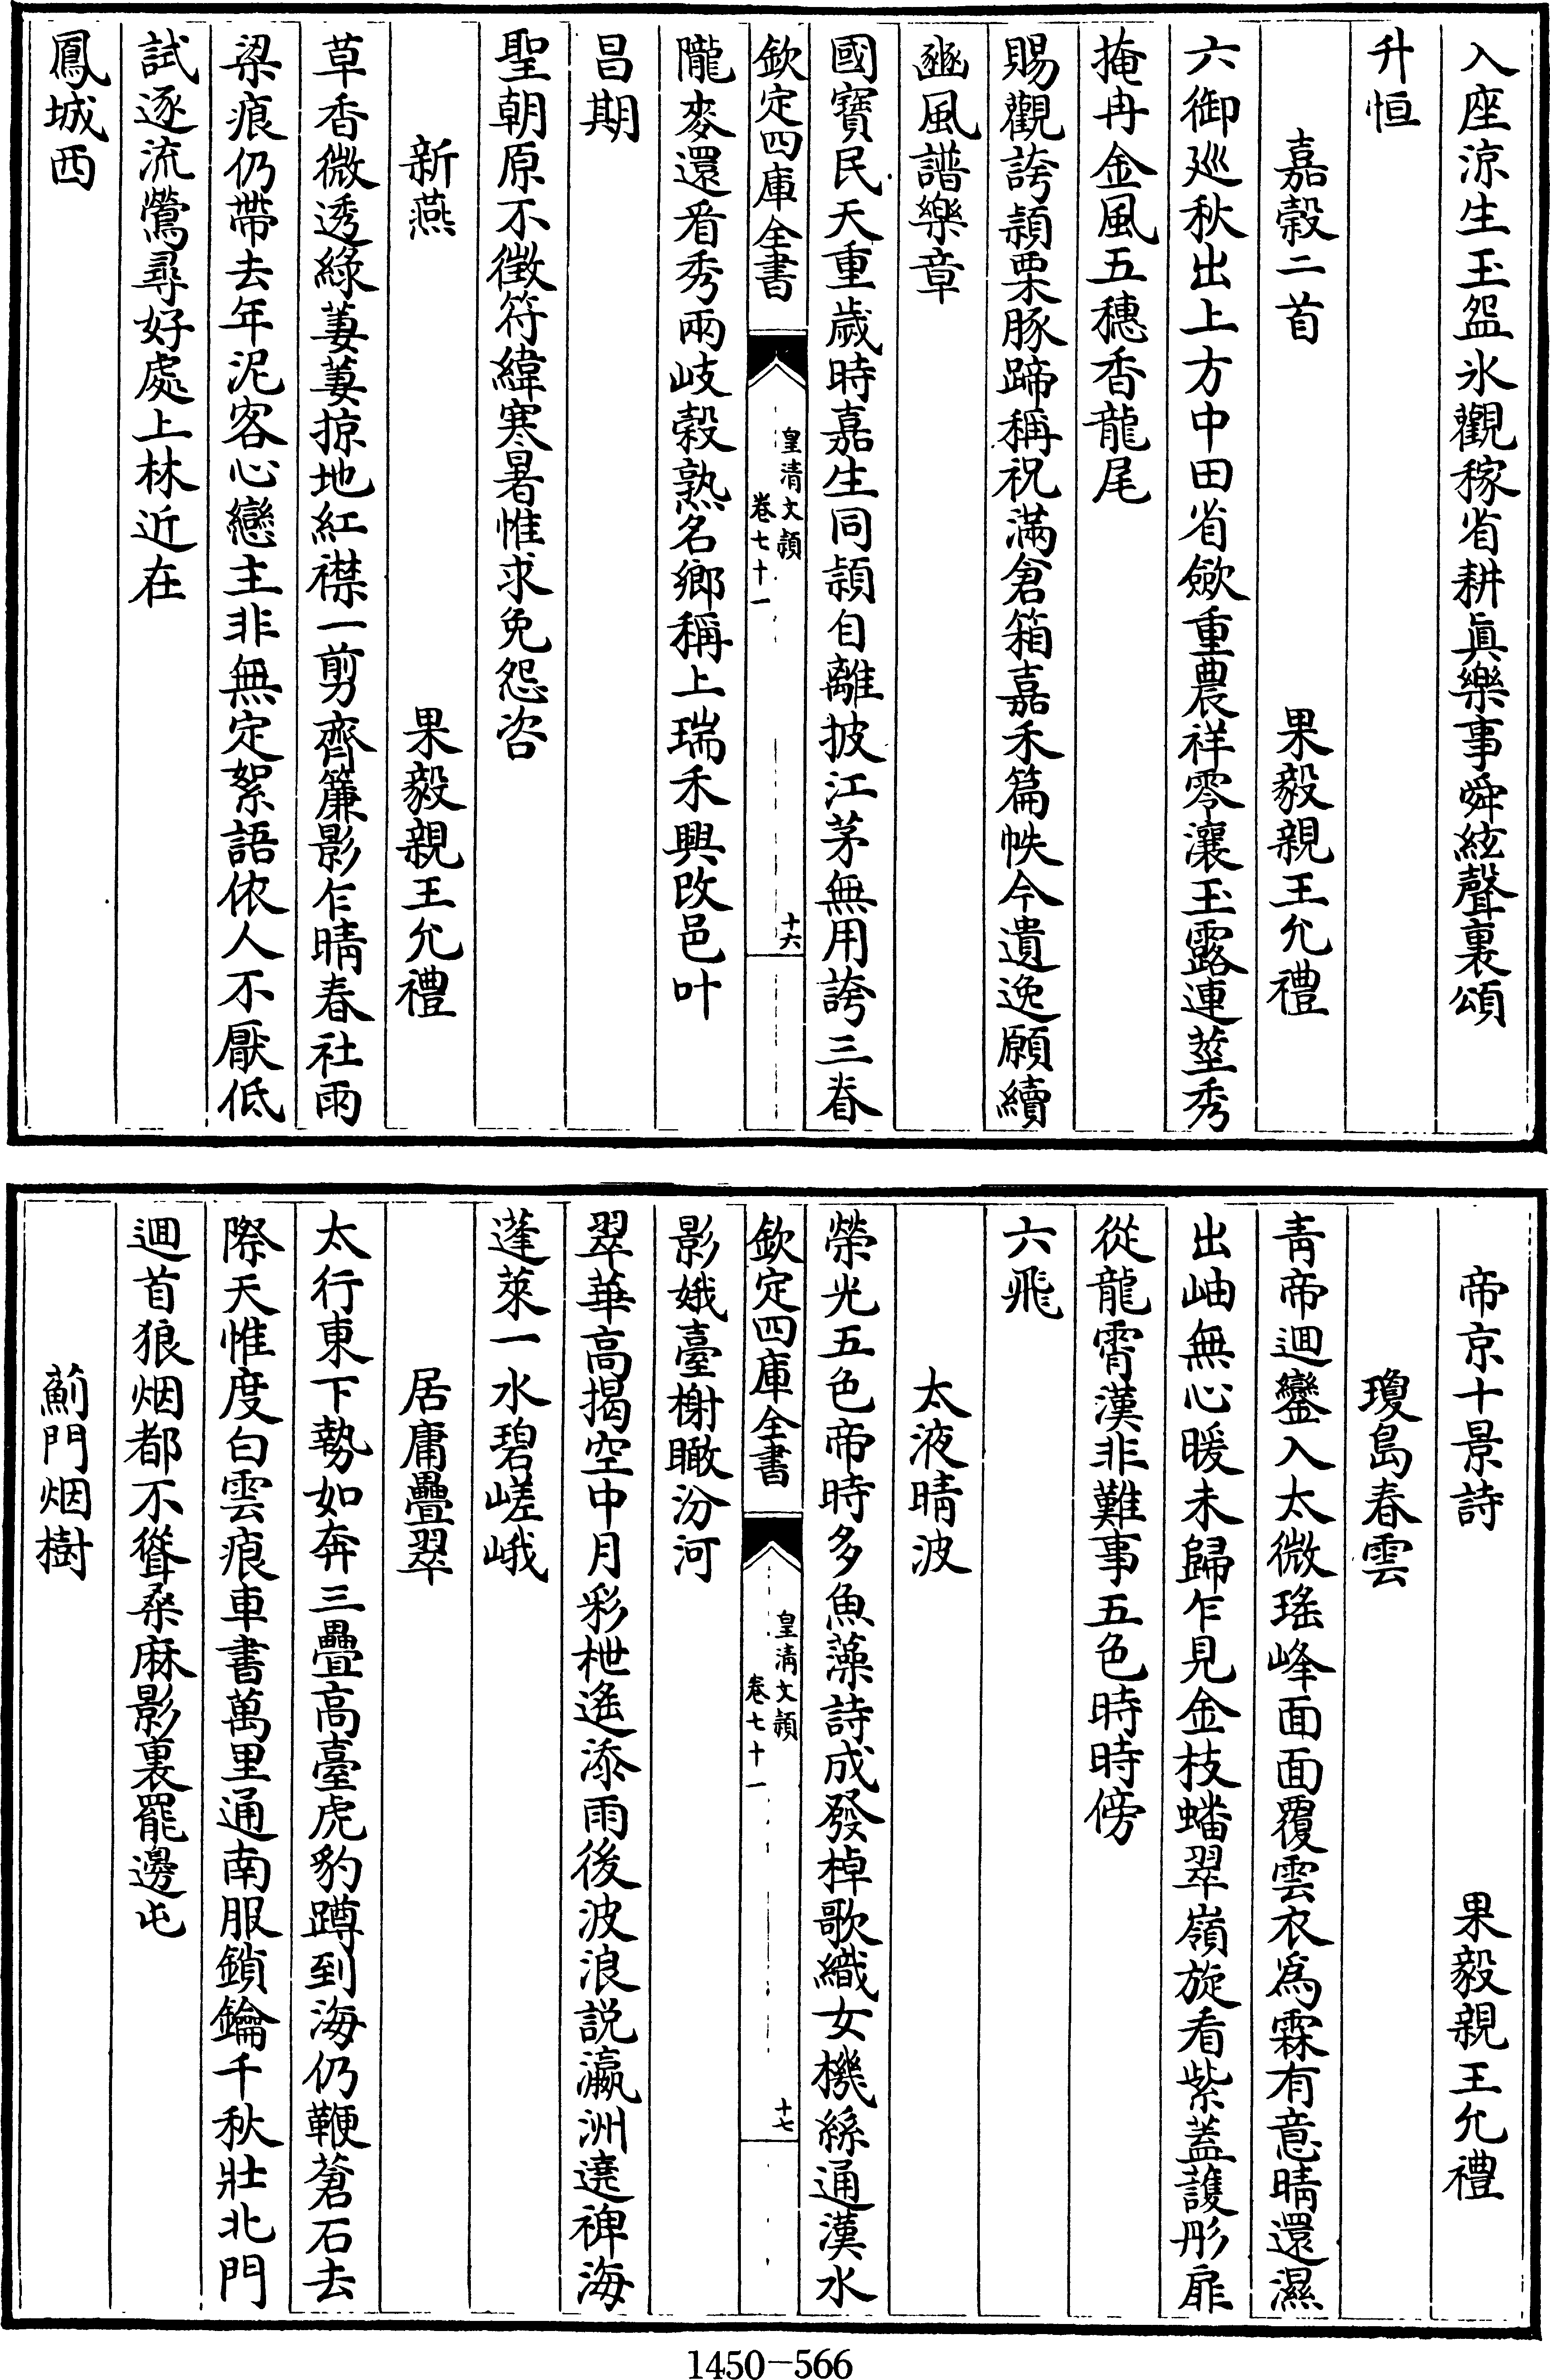 入座涼生玉盌氷觀稼省耕眞樂事舜絃聲裏頌
升恒
嘉穀二首　果毅親王允禮
六御廵秋出上方中田省歛重農祥零瀼玉露連莖秀
掩冉金風五穗香龍尾
賜觀誇頴栗豚蹄稱祝滿倉箱嘉禾篇帙今遺逸願續
豳風譜樂章
國寶民天重歲時嘉生同頴自離披江茅無用誇三脊
欽定四庫全書　皇清文頴　卷七十一　十六
隴麥還看秀兩岐穀熟名鄉稱上瑞禾興改邑叶
昌期
聖朝原不徵符緯寒暑惟求免怨咨
新燕　果毅親王允禮
草香微透綠萋萋掠地紅襟一剪齊簾影乍晴春社雨
梁痕仍帶去年泥客心戀主非無定絮語依人不厭低
試逐流鶯尋好處上林近在
鳳城西
帝京十景詩　果毅親王允禮
瓊島春雲
青帝迴鑾入太微瑤峰面面覆雲衣爲霖有意晴還濕
出岫無心暖未歸乍見金枝蟠翠嶺旋看紫蓋護彤扉
從龍霄漢非難事五色時時傍
六飛
太液晴波
榮光五色帝時多魚藻詩成發棹歌織女機絲通漢水
欽定四庫全書　皇清文頴　卷七十一　十七
影娥臺榭瞰汾河
翠華高揭空中月彩枻遙添雨後波浪説瀛洲遶裨海
蓬萊一水碧嵯峨
居庸疊翠
太行東下勢如奔三疊高臺虎豹蹲到海仍鞭蒼石去
際天惟度白雲痕車書萬里通南服鎖鑰千秋壯北門
迴首狼烟都不聳桑麻影裏罷邊屯
薊門烟樹
1450-566